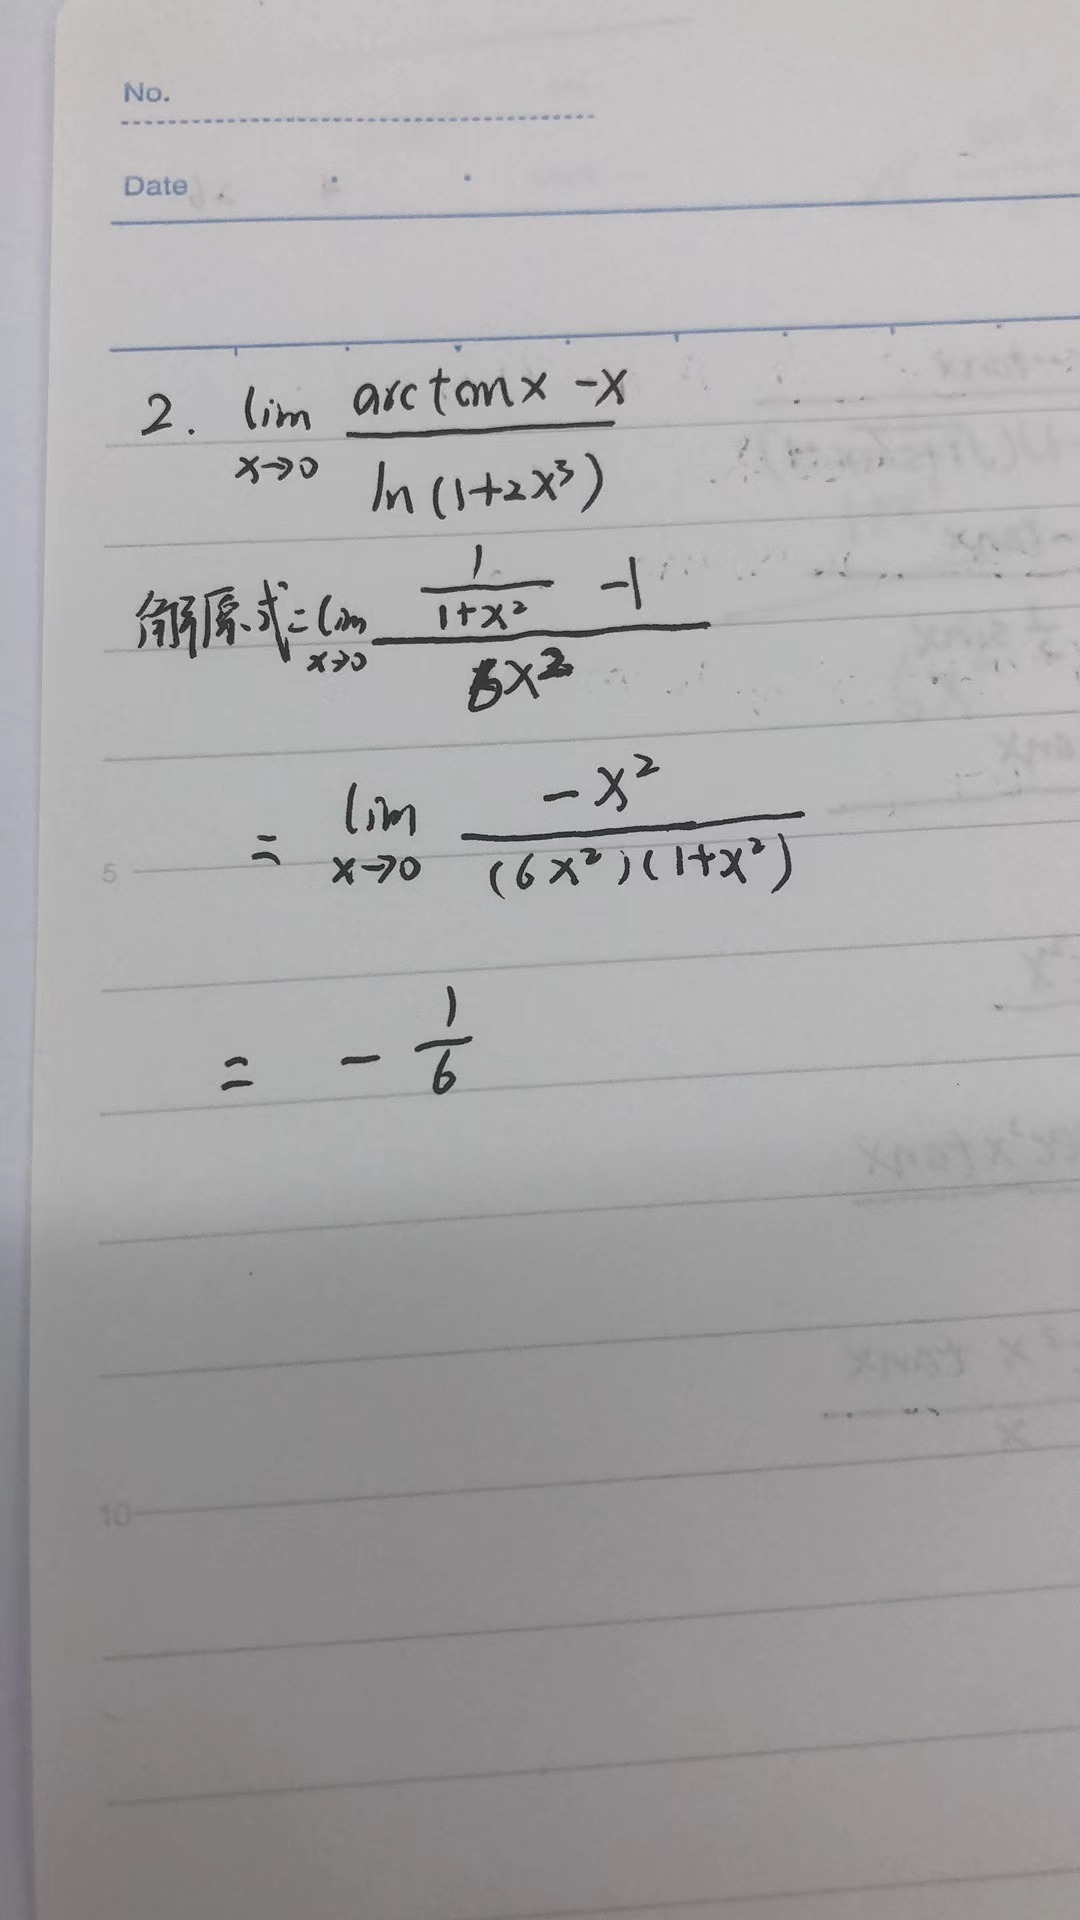 No.
Date
2. lim x→0 (arctanx - x) / (ln(1+2x³))
解原式 = lim x→0 (1/(1+x²) - 1) / (6x²)
5
= lim x→0 (-x²) / ((6x²)(1+x²))
= - 1/6
10